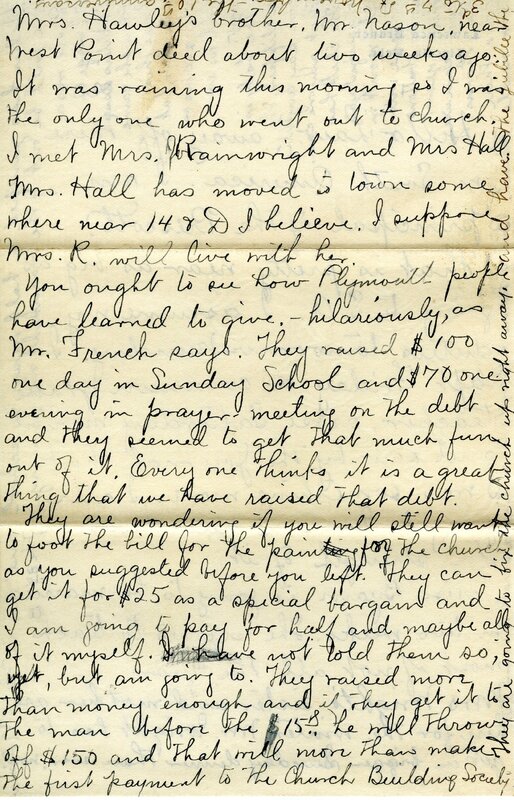 Mrs. Hawley's brother, Mr. Nason, near
West Point died about two weeks ago.
It was raining this morning so I was
the only one who went out to church.
I met Mrs. Rainwright and Mrs Hall
Mrs. Hall has moved to town some
where near 14 & D I believe. I suppose
Mrs. R. will live with her.
You ought to see how Plymouth people
have learned to give. - hilariously, as
Mr. French says. They raised $100
one day in Sunday School and $70 one
evening in prayer-meeting on the debt
and they seemed to get that much fun
out of it. Every one thinks it is a great
thing that we have raised that debt.
They are wondering if you will still want
to foot the bill for the painting for the church
as you suggested before you left. They can
get it for $25 as a special bargain and
I am going to pay for half and maybe all
of it myself. I have not told them so,
yet, but am going to. They raised more
than money enough and if they get it to
the man before the 15th he will throw
off $150 and that will more than make
the first payment to the Church Building Society
They are going to fix the church up right away, and have the jubilee the